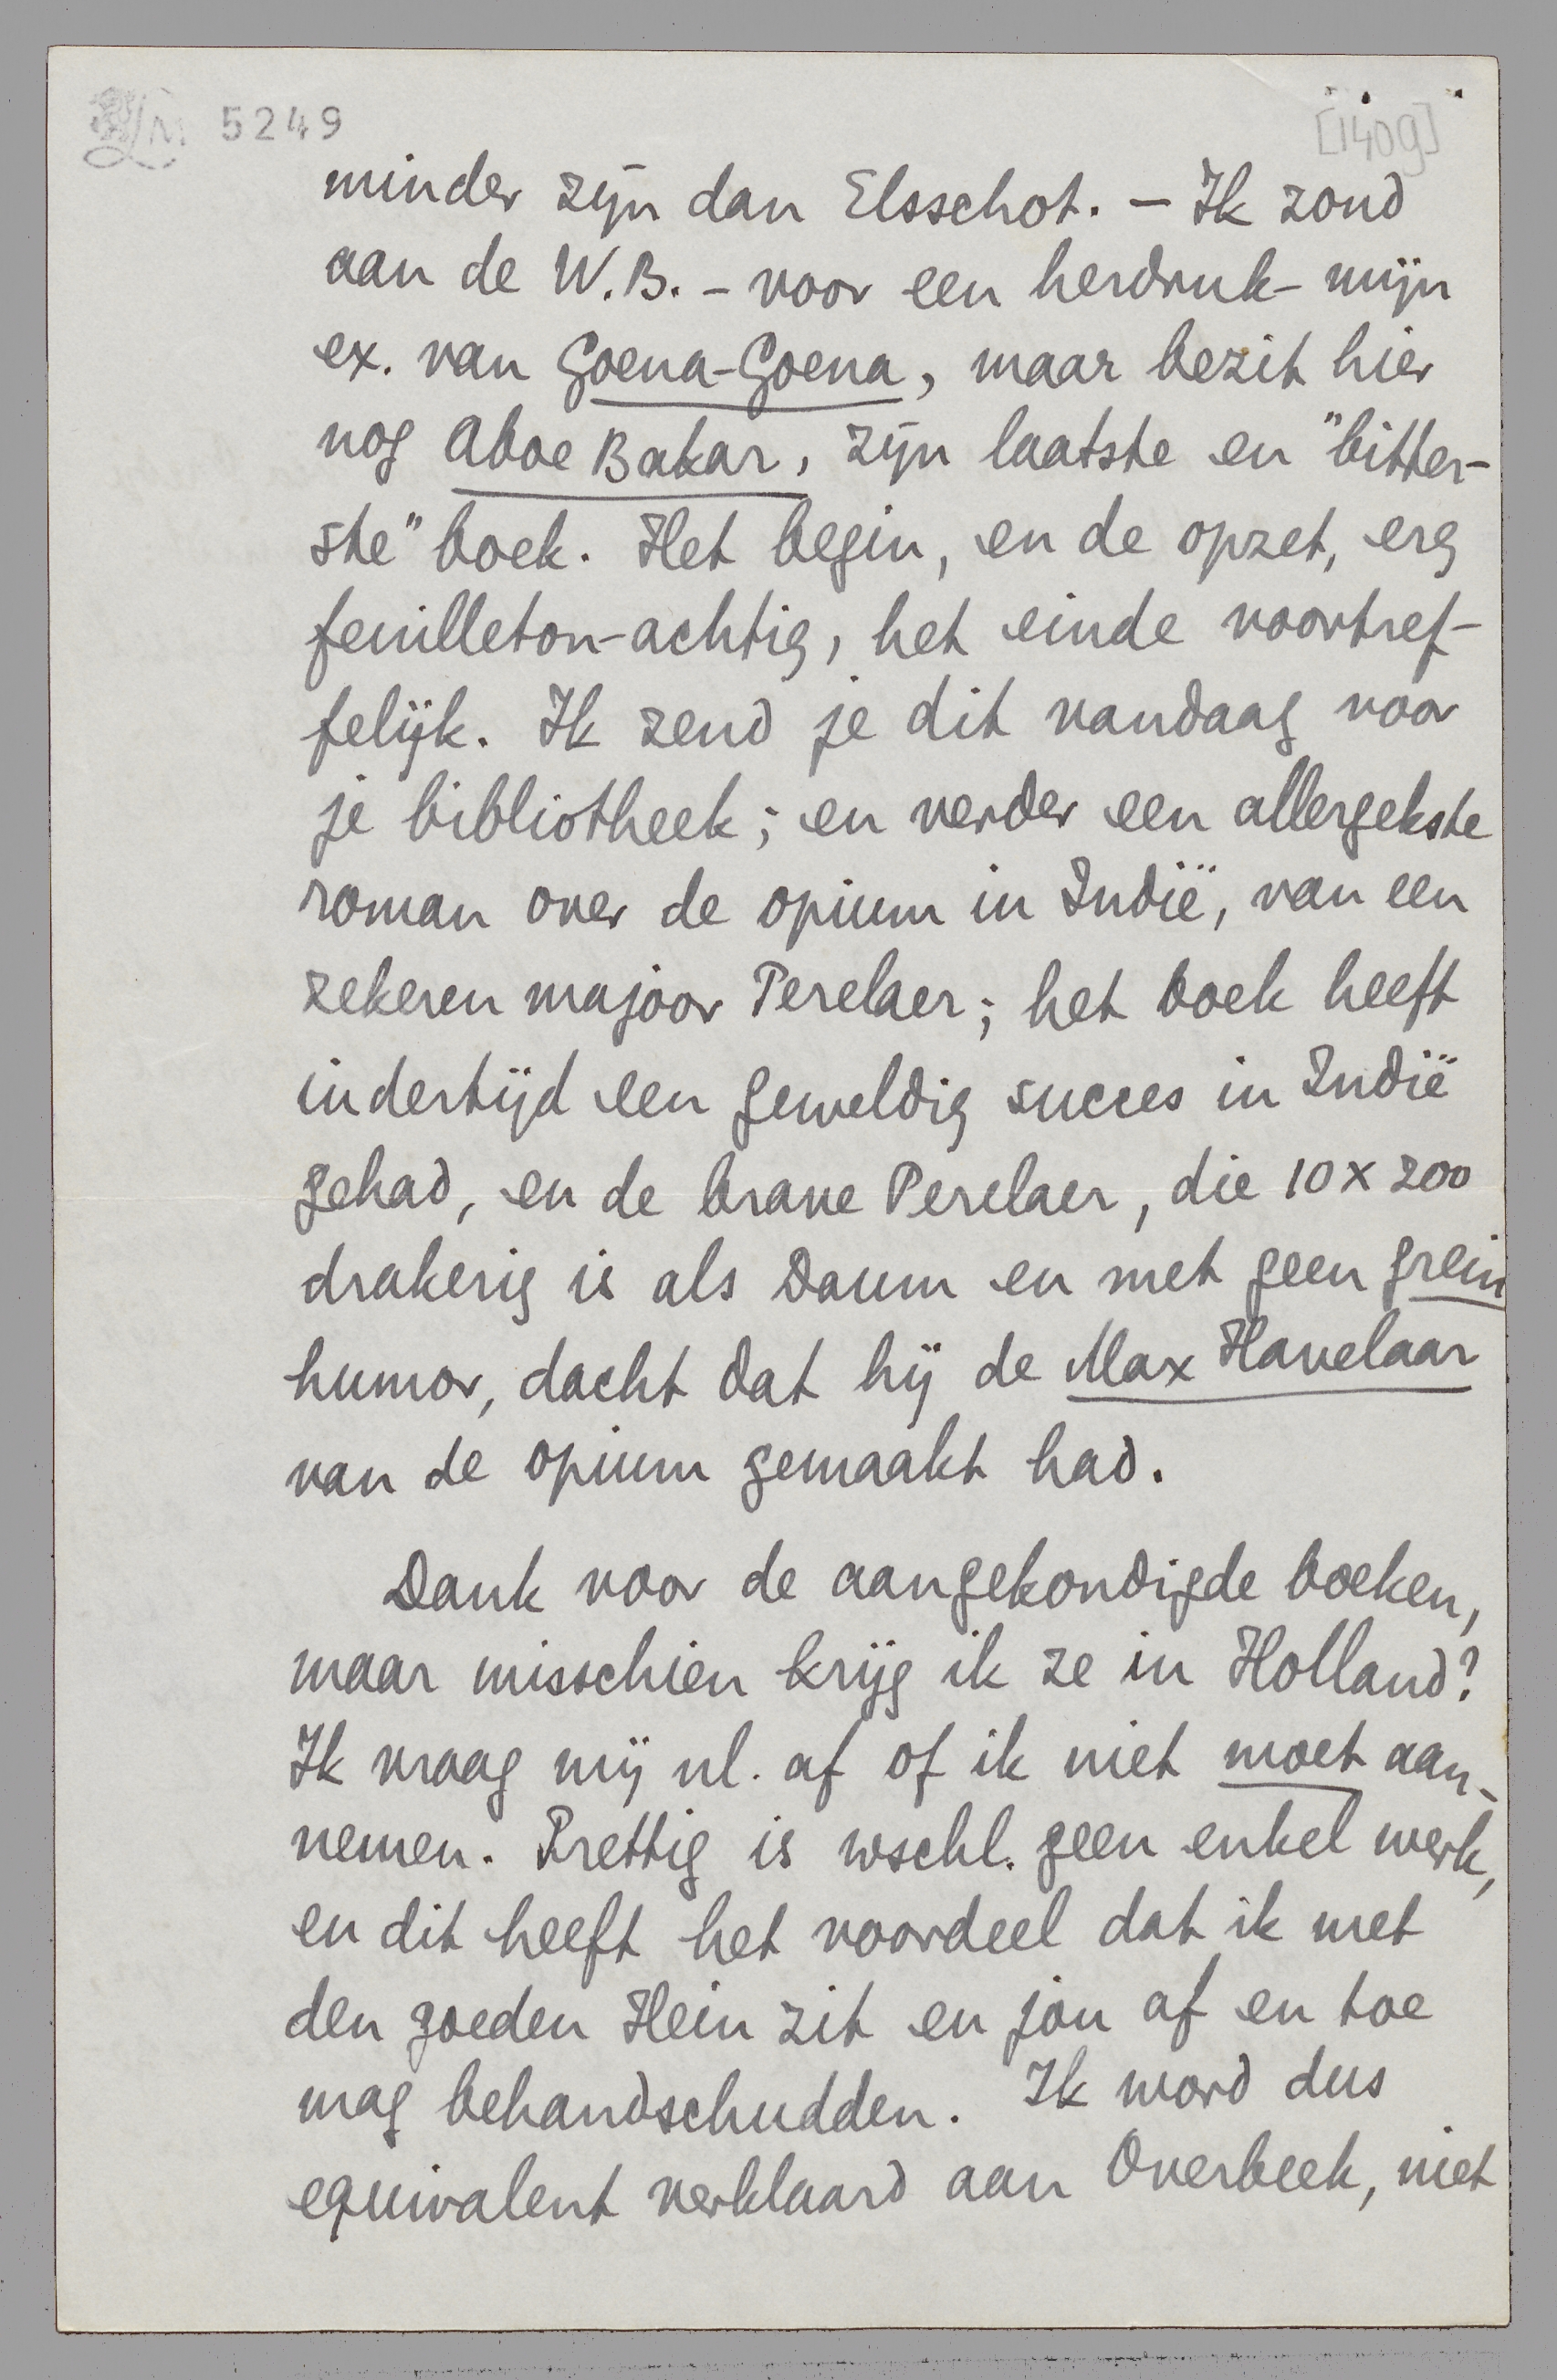 5249
[1409]
minder zijn dan Elsschot. – Ik zond
aan de W.B. – voor een herdruk – mijn
ex. van Goena-Goena, maar bezit hier
nog Aboe Bakar, zijn laatste en "bitter-
ste" boek. Het begin, en de opzet, erg
feuilleton-achtig, het einde voortref-
felijk. Ik zend je dit vandaag voor
je bibliotheek; en verder een allergekste
roman over de opium in Indië, van een
zekeren majoor Perelaer; het boek heeft
indertijd een geweldig succes in Indië
gehad, en de brave Perelaer, die 10 x zoo
drakerig is als Daum en met geen grein
humor, dacht dat hij de Max Havelaar
van de opium gemaakt had.
Dank voor de aangekondigde boeken,
maar misschien krijg ik ze in Holland?
Ik vraag mij nl. af of ik niet moet aan-
nemen. Prettig is wschl. geen enkel werk,
en dit heeft het voordeel dat ik met
den goeden Hein zit en jou af en toe
mag behandschudden. Ik word dus
equivalent verklaard aan Overbeek, niet